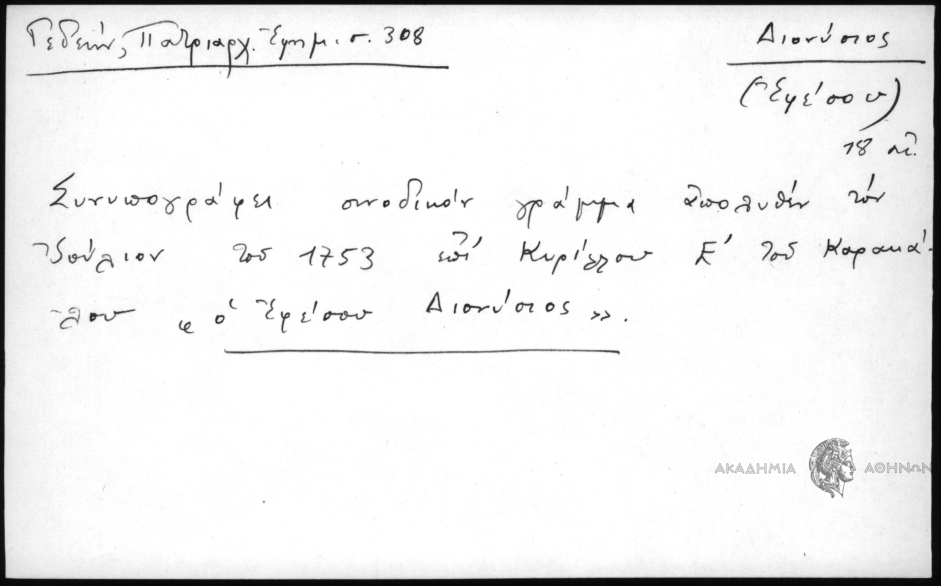 Γεδεών, Πατριαρχ. Ἐφημ. σ. 308
Διονύσιος
(Ἐφέσου)
18 αἰ.
Συνυπογράφει συνοδικὸν γράμμα ἀπολυθὲν τὸν
Ἰούλιον τοῦ 1753 ἐπὶ Κυρίλλου Ε' τοῦ Καρακά-
λου « ὁ Ἐφέσου Διονύσιος ».
ΑΚΑΔΗΜΙΑ ΑΘΗΝΩΝ